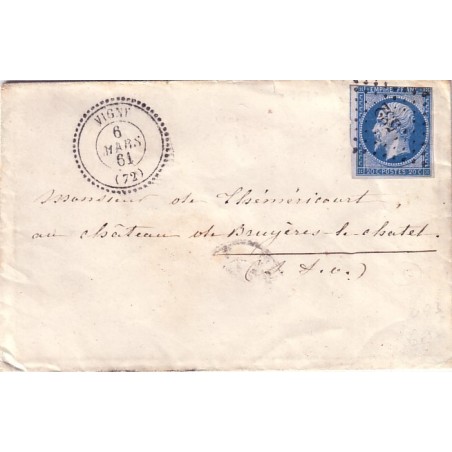 VIGNY
6
MARS
61
(72)
EMPIRE FRANC
20 C POSTES 20 C
Monsieur de Théméricourt,
au château de Bruyères-le-chatel.
(S. & O.)